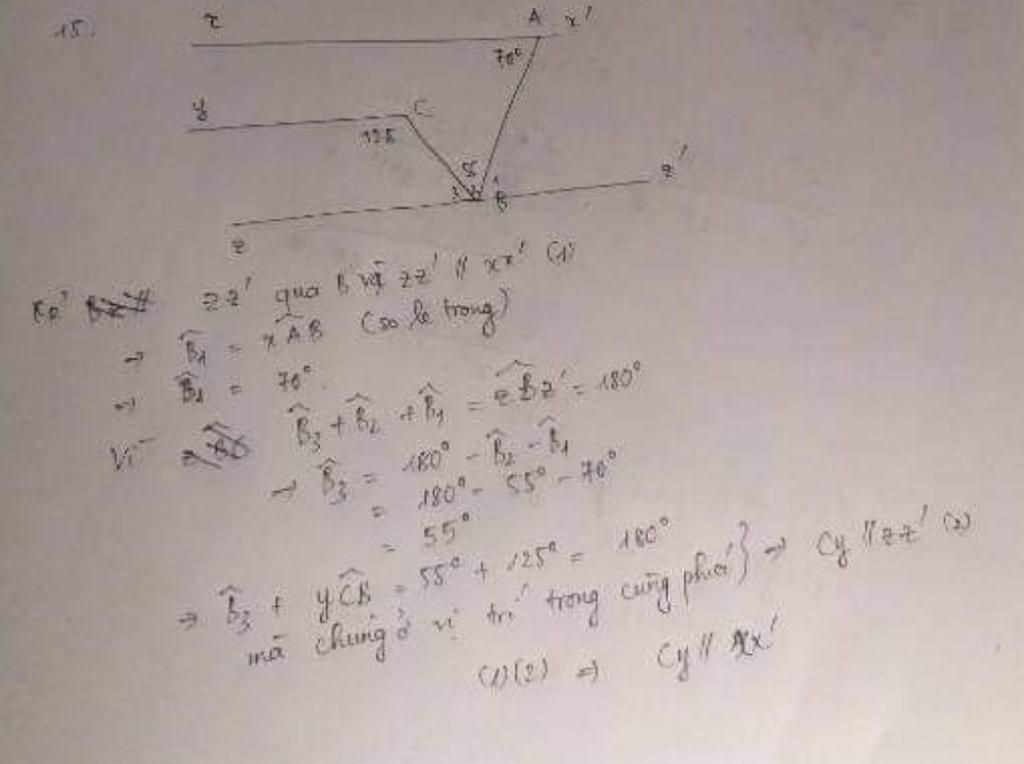 15.
x
A x'
70°
y
C
125
55
3 2 1
B
z'
z
zz' qua B vẽ zz' // xx' (1)
→ B̂₁ = xÂB (so le trong)
→ B̂₁ = 70°
Vì B̂₃ + B̂₂ + B̂₁ = zB̂z' = 180°
→ B̂₃ = 180° - B̂₂ - B̂₁
= 180° - 55° - 70°
= 55°
→ B̂₃ + yĈB = 55° + 125° = 180°
mà chúng ở vị trí trong cùng phía } → Cy // zz' (2)
(1)(2) → Cy // xx'